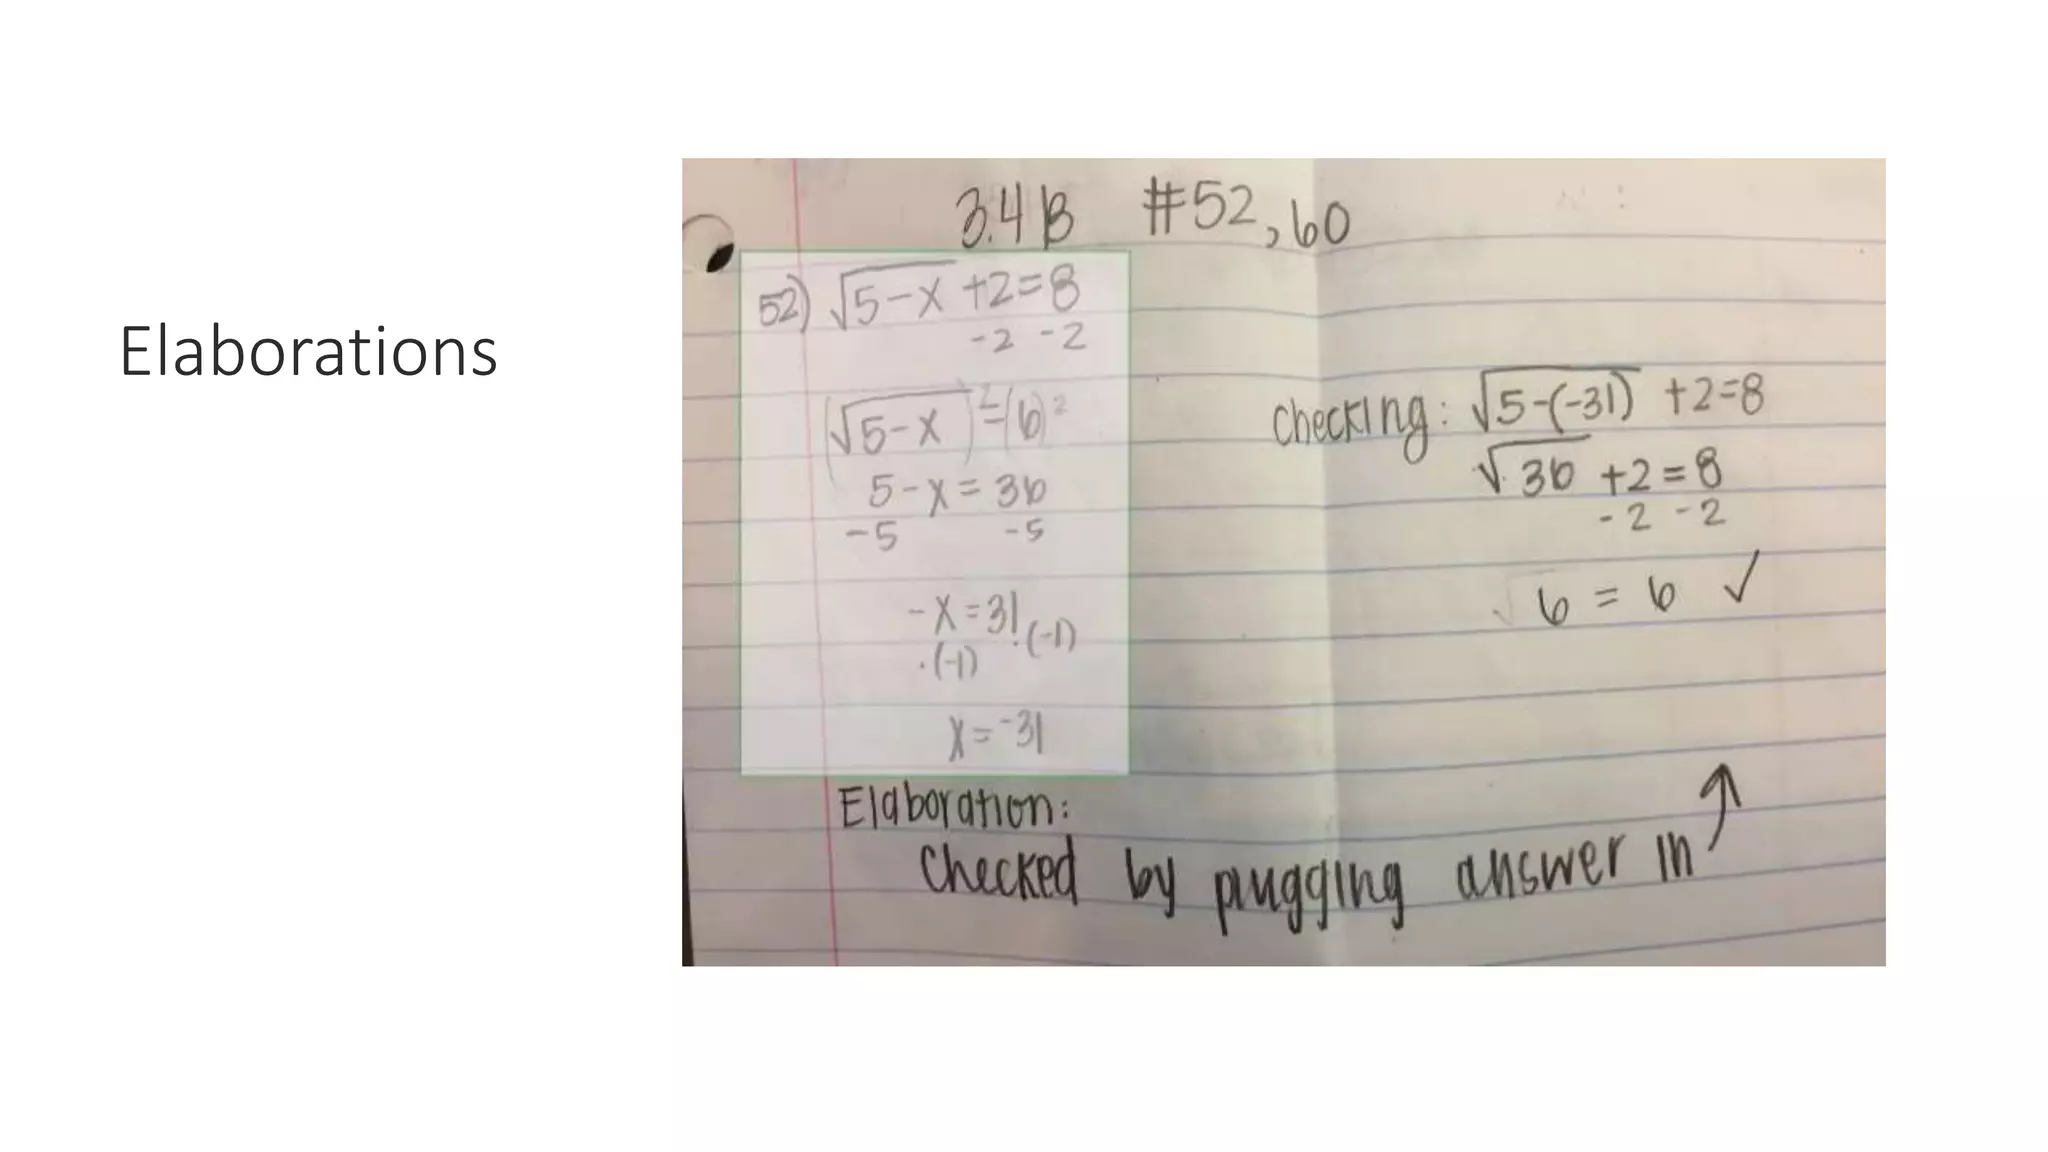 Elaborations
3.4B #52, 60
52) √5-x +2=8
-2 -2
(√5-x)²=(6)²
5-x=36
-5 -5
-x=31
·(-1) ·(-1)
x=-31
Checking: √5-(-31) +2=8
√36 +2=8
-2 -2
6 = 6 ✓
Elaboration:
Checked by plugging answer in ↑